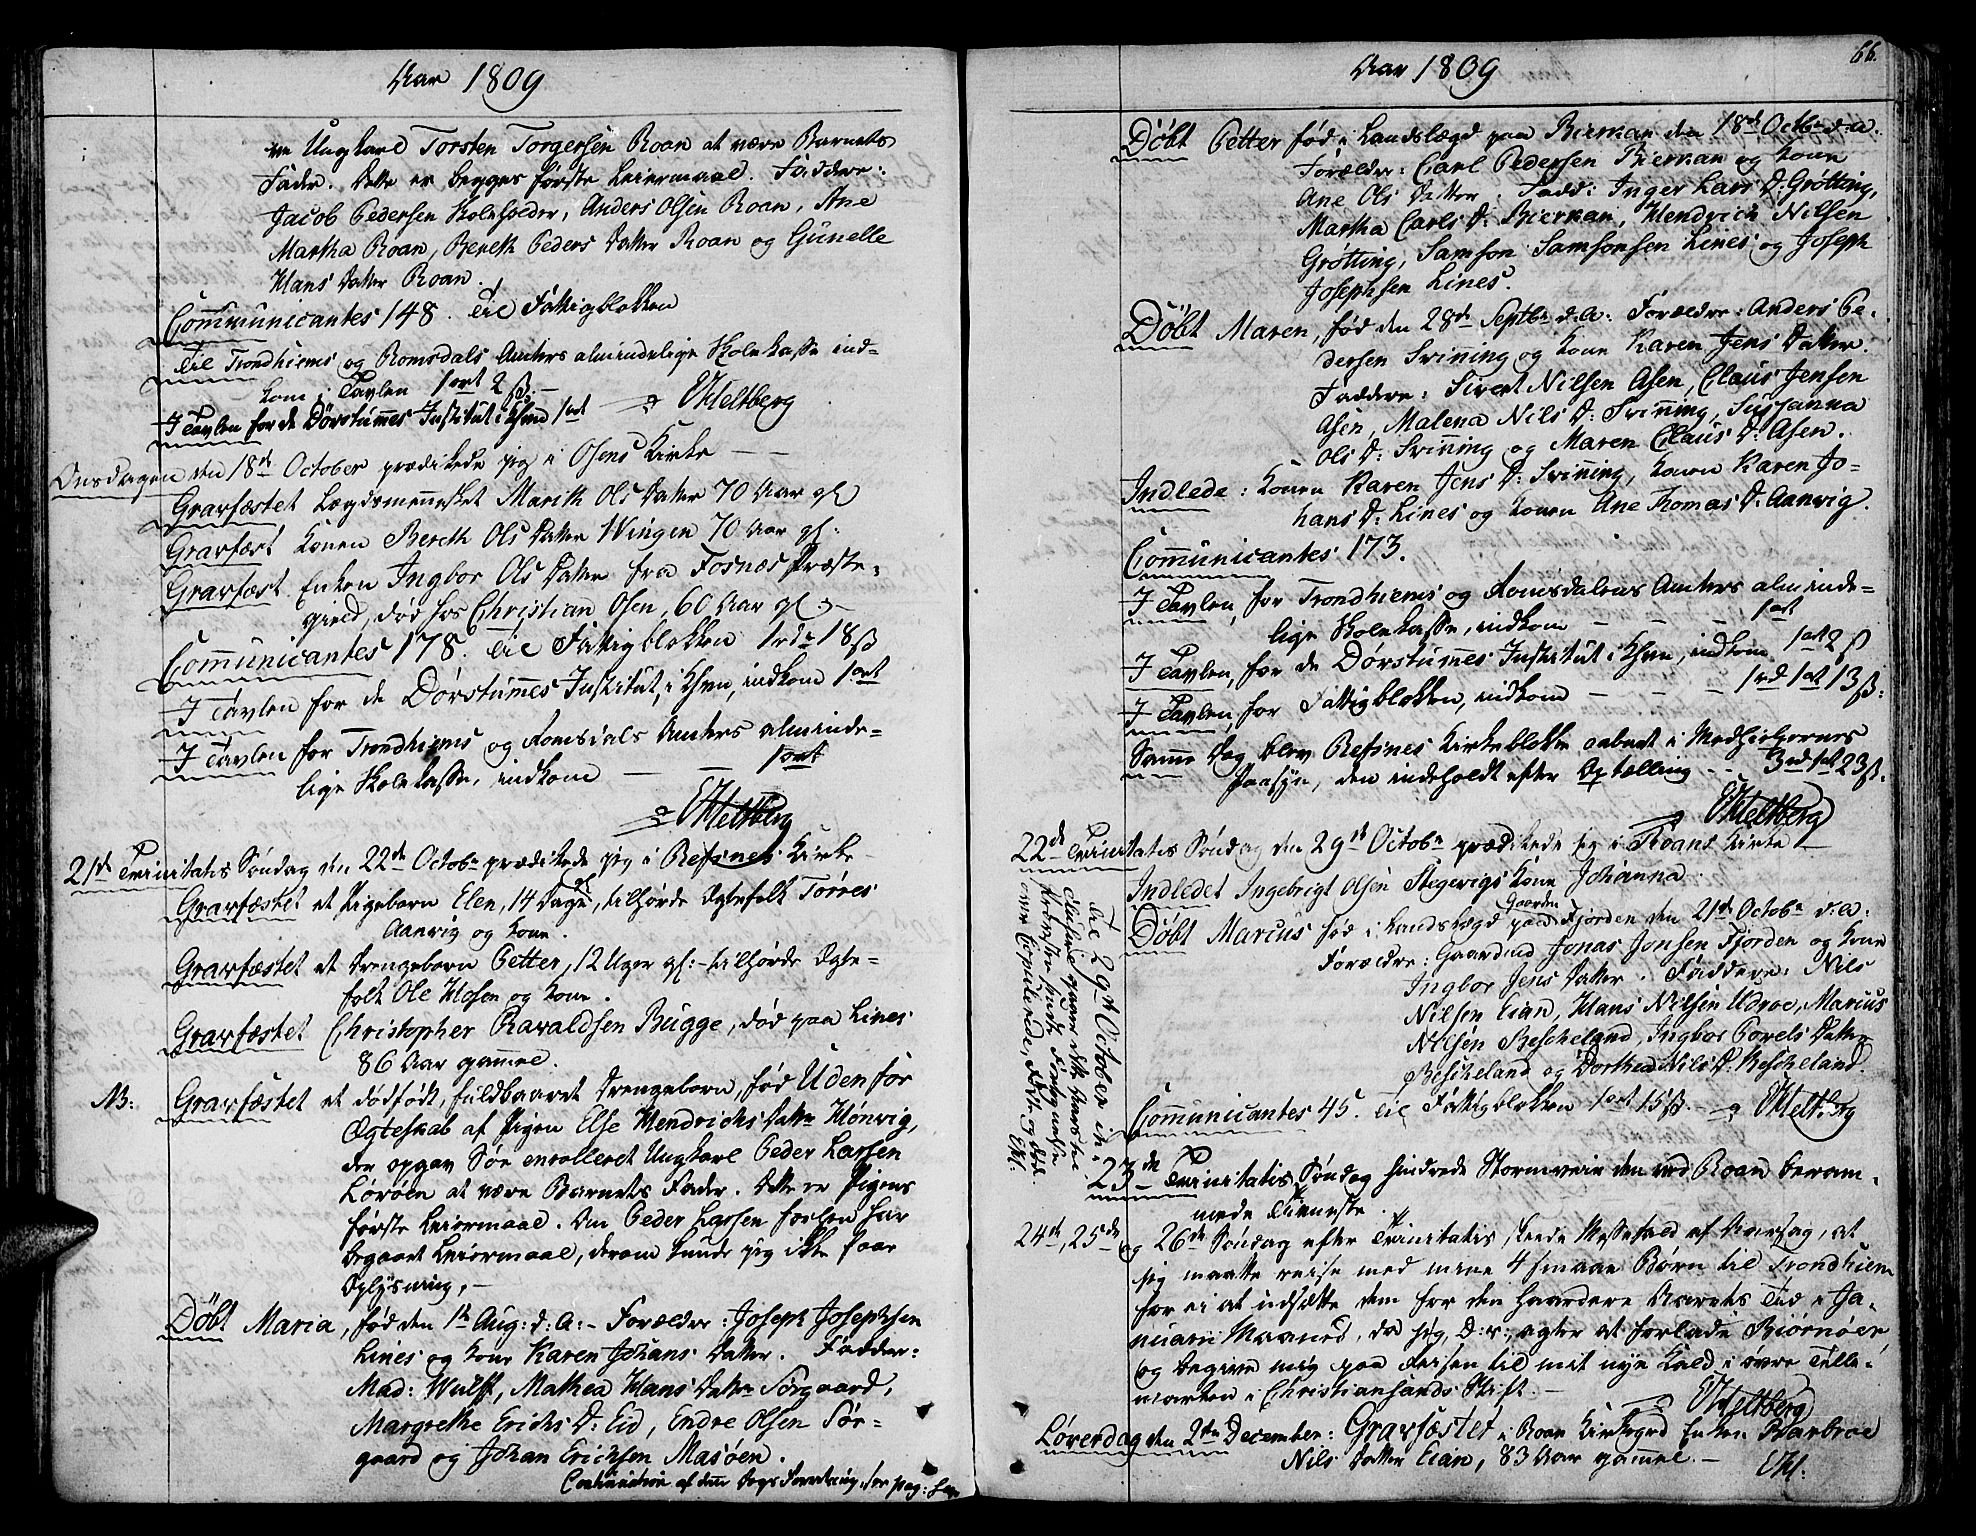 Aar 1809
Ungkarl Torsten Torgersen Roan at være Barnets
Fader. Dette er begges første Leiermaal. Faddere:
Jacob Pedersen Skoleholder, Anders Olsen Roan, Ane
Martha Roan, Bereth Peders Datter Roan og Gunelle
Hans Datter Roan.
Communicantes 148. Til Fattigblokken
Til Trondhiems og Romsdals Amters almindelige Skolekasse ind-
kom i Tavlen 1 ort 2 ß.
I Tavlen for de Døvstummes Institut i Khvn 1 ort Heltberg
Onsdagen den 18de October prædikede jeg i Osens Kirke
Gravfæstet Lægdsmennesket Marith Ols Datter 70 Aar gl
Gravfæst Konen Bereth Ols Datter Wingen 70 Aar gl.
Gravfæst Enken Ingbor Ols Datter fra Fosnæs Præste-
gield, død hos Christian Osen, 60 Aar gl.
Communicantes 178. Til Fattigblokken 1 rd 18 ß
I Tavlen for de Døvstummes Institut, i Khvn, indkom 1 ort
I Tavlen for Trondhiems og Romsdals Amters alminde-
lige Skolekasse, indkom 1 ort
Heltberg
21de Trinitatis Søndag den 22de Octobr prædikede jeg i Refsnes Kirke
Gravfæstet et Pigebarn Elen, 14 Dage gl, tilhørde Egtefolk Tørres
Aanvig og Kone.
Gravfæstet et Drengebarn Petter, 12 Uger gl: tilhørde Egte-
folk Ole Hosen og Kone.
Gravfæstet Christopher Ravaldsen Bugge, død paa Lines
86 Aar gammel.
NB: Gravfæstet et dødfødt, fuldbaaret Drengebarn, fød Uden for
Ægteskab af Pigen Else Hendrichs Datr Hønvig,
der opgav Søe enrolleret Ungkarl Peder Larsen
Lørøen at være Barnets Fader. Dette er Pigens
første Leiermaal. Om Peder Larsen forhen har
begaaet Leiermaal, derom kunde jeg ikke faae
Oplysning.
Døbt Maria, fød den 1te Aug: d: A: Forældre: Joseph Josephsen
Lines og Kone Karen Johans Datter. Fadder:
Mad: Wulff, Mathea Hans Datr Sørgaard,
Margrethe Erichs D: Eid, Endre Olsen Sør-
gaard og Johan Erichsen Masøen.
Continuation af denne Dags Forretning, see pag:
66.
Aar 1809
Døbt Petter fød i Landslægd paa Bierkan den 18de Octbr d: a.
Forældre: Carl Pedersen Bierkan og Kone
Ane Ols Datter. Fadd: Inger Lars D: Grøtting,
Martha Carls D: Bierkan, Hendrich Nilsen
Grøtting, Samson Samsonsen Lines og Joseph
Josephsen Lines.
Døbt Maren, fød den 28de Septbr d: a: Forældre: Anders Pe-
dersen Svining og Kone Karen Jens Datter.
Faddere: Sivert Nilsen Asen, Claus Jensen
Asen, Malena Nils D: Svining, Susanna
Ols D: Svining og Maren Claus D: Asen.
Indlede: Konen Karen Jens D: Svining, Konen Karen Jo-
hans D: Lines og Konen Ane Thomas D: Aanvig.
Communicantes 173.
I Tavlen, for Trondhiems og Romsdalens Amters alminde-
lige Skolekasse, indkom 1 ort
I Tavlen, for de Døvstummes Institut i Khvn, indkom 1 ort 2 ß
I Tavlen, for Fattigblokken, indkom 1 rd 1 ort 13 ß:
Samme Dag blev Refsnes Kirkeblokke aabnet i Medhielpernes
Paasyn, den indeholdt efter Optælling 3 rd 1 ort 23 ß.
Heltberg
22de Trinitatis Søndag den 29de Octobr prædikede jeg i Roans Kirke
Indledet Ingebrigt Olsen Stegevigs Kone Johanna.
Døbt Marcus fød i Landslægd paa Gaarden Fjorden den 21de Octobr d: a:
Forældre: Gaardmd Jonas Jonsen Fjorden og Kone
Ingbor Jens Datter. Faddere: Nils
Nilsen Eian, Hans Nilsen Udroe, Marcus
Nilsen Beskeland, Ingbor Povels Datter
Beskeland og Dorthea Nils D: Beskeland.
Communicantes 45. Til Fattigblokken 1 ort 15 ß. Heltberg
Til 29de October in-
clusive
over Copulerede, Fødte og Døde.
23de Trinitatis Søndag hindrede Stormveir den ved Roan beram-
mede Tieneste.
24de, 25de og 26de Søndag efter Trinitatis, skeede Messefald af Aarsag, at
jeg maatte reise med mine 4 smaae Børn til Trondhiem
for ei at udsætte dem for den haardere Aarets Tid i Ja-
nuarii Maaned, da jeg, D: v:, agter at forlade Biørnøer
og begive mig paa Reisen til mit nye Kald i øvre Telle-
marken i Christiansands Stift.
Heltberg
Løverdag den 2den December: Gravfæstet i Roan Kirkegrd Enken Barbroe
Nils Datter Eian, 83 Aar gammel.